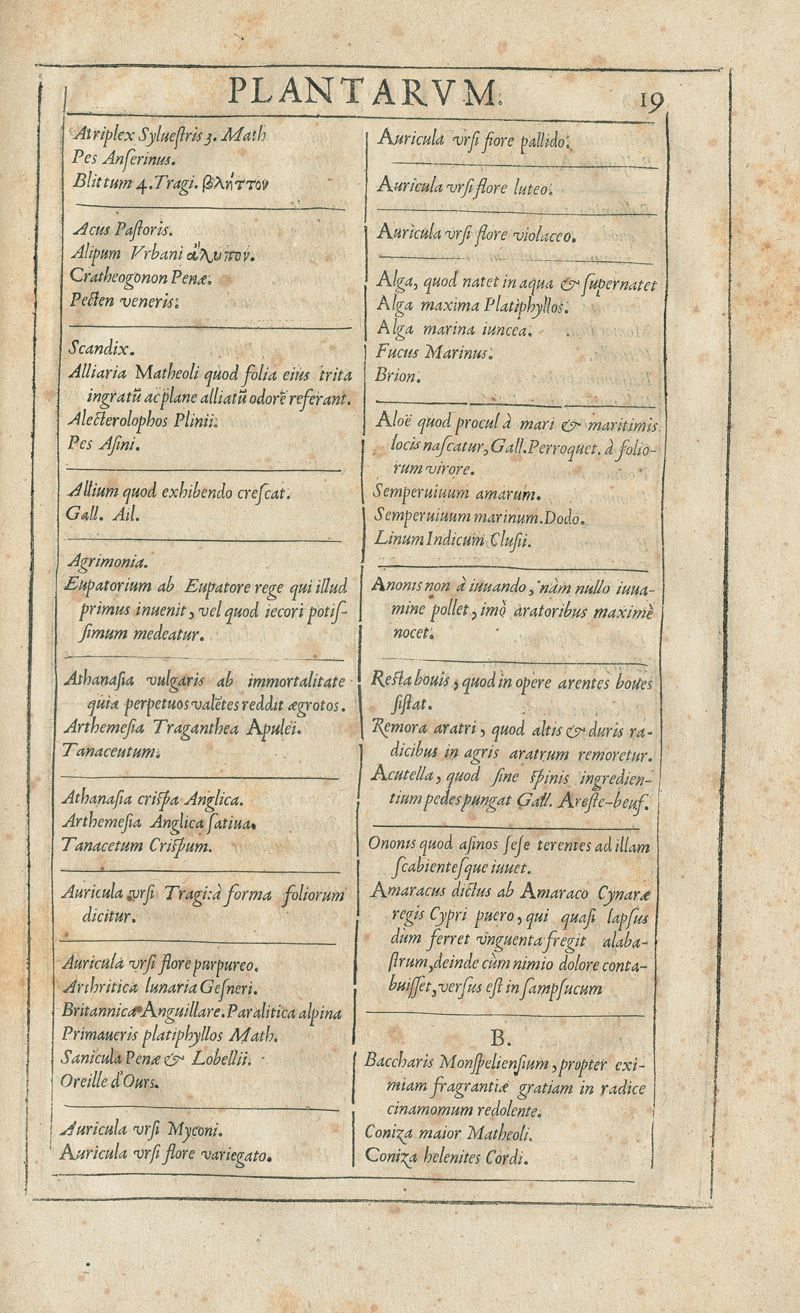 PLANTARVM.
19
Atriplex Sylueſtris 3. Math
Pes Anſerinus.
Blittum 4. Tragi. βλήττον
Acus Paſtoris.
Alipum Vrbani ἄλυπον.
Cratheogonon Penæ.
Pecten veneris.
Scandix.
Alliaria Matheoli quod folia eius trita
ingratū ac plane alliatū odorē referant.
Alecterolophos Plinii.
Pes Aſini.
Allium quod exhibendo creſcat.
Gall. Ail.
Agrimonia.
Eupatorium ab Eupatore rege qui illud
primus inuenit, vel quod iecori potiſ-
ſimum medeatur.
Athanaſia vulgaris ab immortalitate
quia perpetuos valētes reddit ægrotos.
Arthemeſia Traganthea Apulei.
Tanaceutum.
Athanaſia criſpa Anglica.
Arthemeſia Anglica ſatiua.
Tanacetum Criſpum.
Auricula vrſi Tragi: à forma foliorum
dicitur.
Auricula vrſi flore purpureo.
Arthritica lunaria Geſneri.
Britannica Anguillare. Paralitica alpina
Primaueris platiphyllos Math.
Sanicula Penæ & Lobellii.
Oreille d'Ours.
Auricula vrſi Myconi.
Auricula vrſi flore variegato.
Auricula vrſi fiore pallido.
Auricula vrſi flore luteo.
Auricula vrſi flore violaceo.
Alga, quod natet in aqua & ſupernatet
Alga maxima Platiphyllos.
Alga marina iuncea.
Fucus Marinus.
Brion.
Aloë quod procul à mari & maritimis
locis naſcatur, Gall. Perroquet. à folio-
rum virore.
Semperuiuum amarum.
Semperuiuum marinum. Dodo.
Linum Indicum Cluſii.
Anonis non à iuuando, nàm nullo iuua-
mine pollet, imò aratoribus maximè
nocet.
Reſta bouis, quod in opere arentes boues
ſiſtat.
Remora aratri, quod altis & duris ra-
dicibus in agris aratrum remoretur.
Acutella, quod ſine ſpinis ingredien-
tium pedes pungat Gall. Areſte-beuf.
Ononis quod aſinos ſeſe terentes ad illam
ſcabienteſque iuuet.
Amaracus dictus ab Amaraco Cynaræ
regis Cypri puero, qui quaſi lapſus
dum ferret vnguenta fregit alaba-
ſtrum, deinde cùm nimio dolore conta-
buiſſet, verſus eſt in ſampſucum
B.
Baccharis Monſpelienſium, propter exi-
miam fragrantiæ gratiam in radice
cinamomum redolente.
Coniza maior Matheoli.
Coniza helenites Cordi.